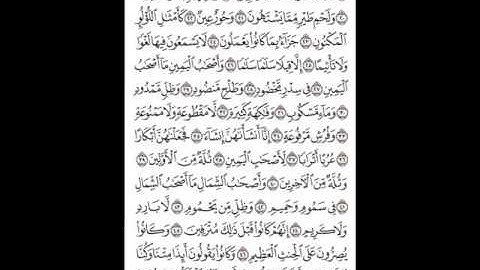 ۝٢٠ وَلَحْمِ طَيْرٍ مِّمَّا يَشْتَهُونَ ۝٢١ وَحُورٌ عِينٌ ۝٢٢ كَأَمْثَٰلِ ٱللُّؤْلُوِٕ
ٱلْمَكْنُونِ ۝٢٣ جَزَآءًۢ بِمَا كَانُوا۟ يَعْمَلُونَ ۝٢٤ لَا يَسْمَعُونَ فِيهَا لَغْوًا
وَلَا تَأْثِيمًا ۝٢٥ إِلَّا قِيلًا سَلَٰمًا سَلَٰمًا ۝٢٦ وَأَصْحَٰبُ ٱلْيَمِينِ مَآ أَصْحَٰبُ
ٱلْيَمِينِ ۝٢٧ فِى سِدْرٍ مَّخْضُودٍ ۝٢٨ وَطَلْحٍ مَّنضُودٍ ۝٢٩ وَظِلٍّ مَّمْدُودٍ
۝٣٠ وَمَآءٍ مَّسْكُوبٍ ۝٣١ وَفَٰكِهَةٍ كَثِيرَةٍ ۝٣٢ لَّا مَقْطُوعَةٍ وَلَا مَمْنُوعَةٍ
۝٣٣ وَفُرُشٍ مَّرْفُوعَةٍ ۝٣٤ إِنَّآ أَنشَأْنَٰهُنَّ إِنشَآءً ۝٣٥ فَجَعَلْنَٰهُنَّ أَبْكَارًا
۝٣٦ عُرُبًا أَتْرَابًا ۝٣٧ لِّأَصْحَٰبِ ٱلْيَمِينِ ۝٣٨ ثُلَّةٌ مِّنَ ٱلْأَوَّلِينَ ۝٣٩
وَثُلَّةٌ مِّنَ ٱلْءَاخِرِينَ ۝٤٠ وَأَصْحَٰبُ ٱلشِّمَالِ مَآ أَصْحَٰبُ ٱلشِّمَالِ
۝٤١ فِى سَمُومٍ وَحَمِيمٍ ۝٤٢ وَظِلٍّ مِّن يَحْمُومٍ ۝٤٣ لَّا بَارِدٍ
وَلَا كَرِيمٍ ۝٤٤ إِنَّهُمْ كَانُوا۟ قَبْلَ ذَٰلِكَ مُتْرَفِينَ ۝٤٥ وَكَانُوا۟
يُصِرُّونَ عَلَى ٱلْحِنثِ ٱلْعَظِيمِ ۝٤٦ وَكَانُوا۟ يَقُولُونَ أَئِذَا مِتْنَا وَكُنَّا